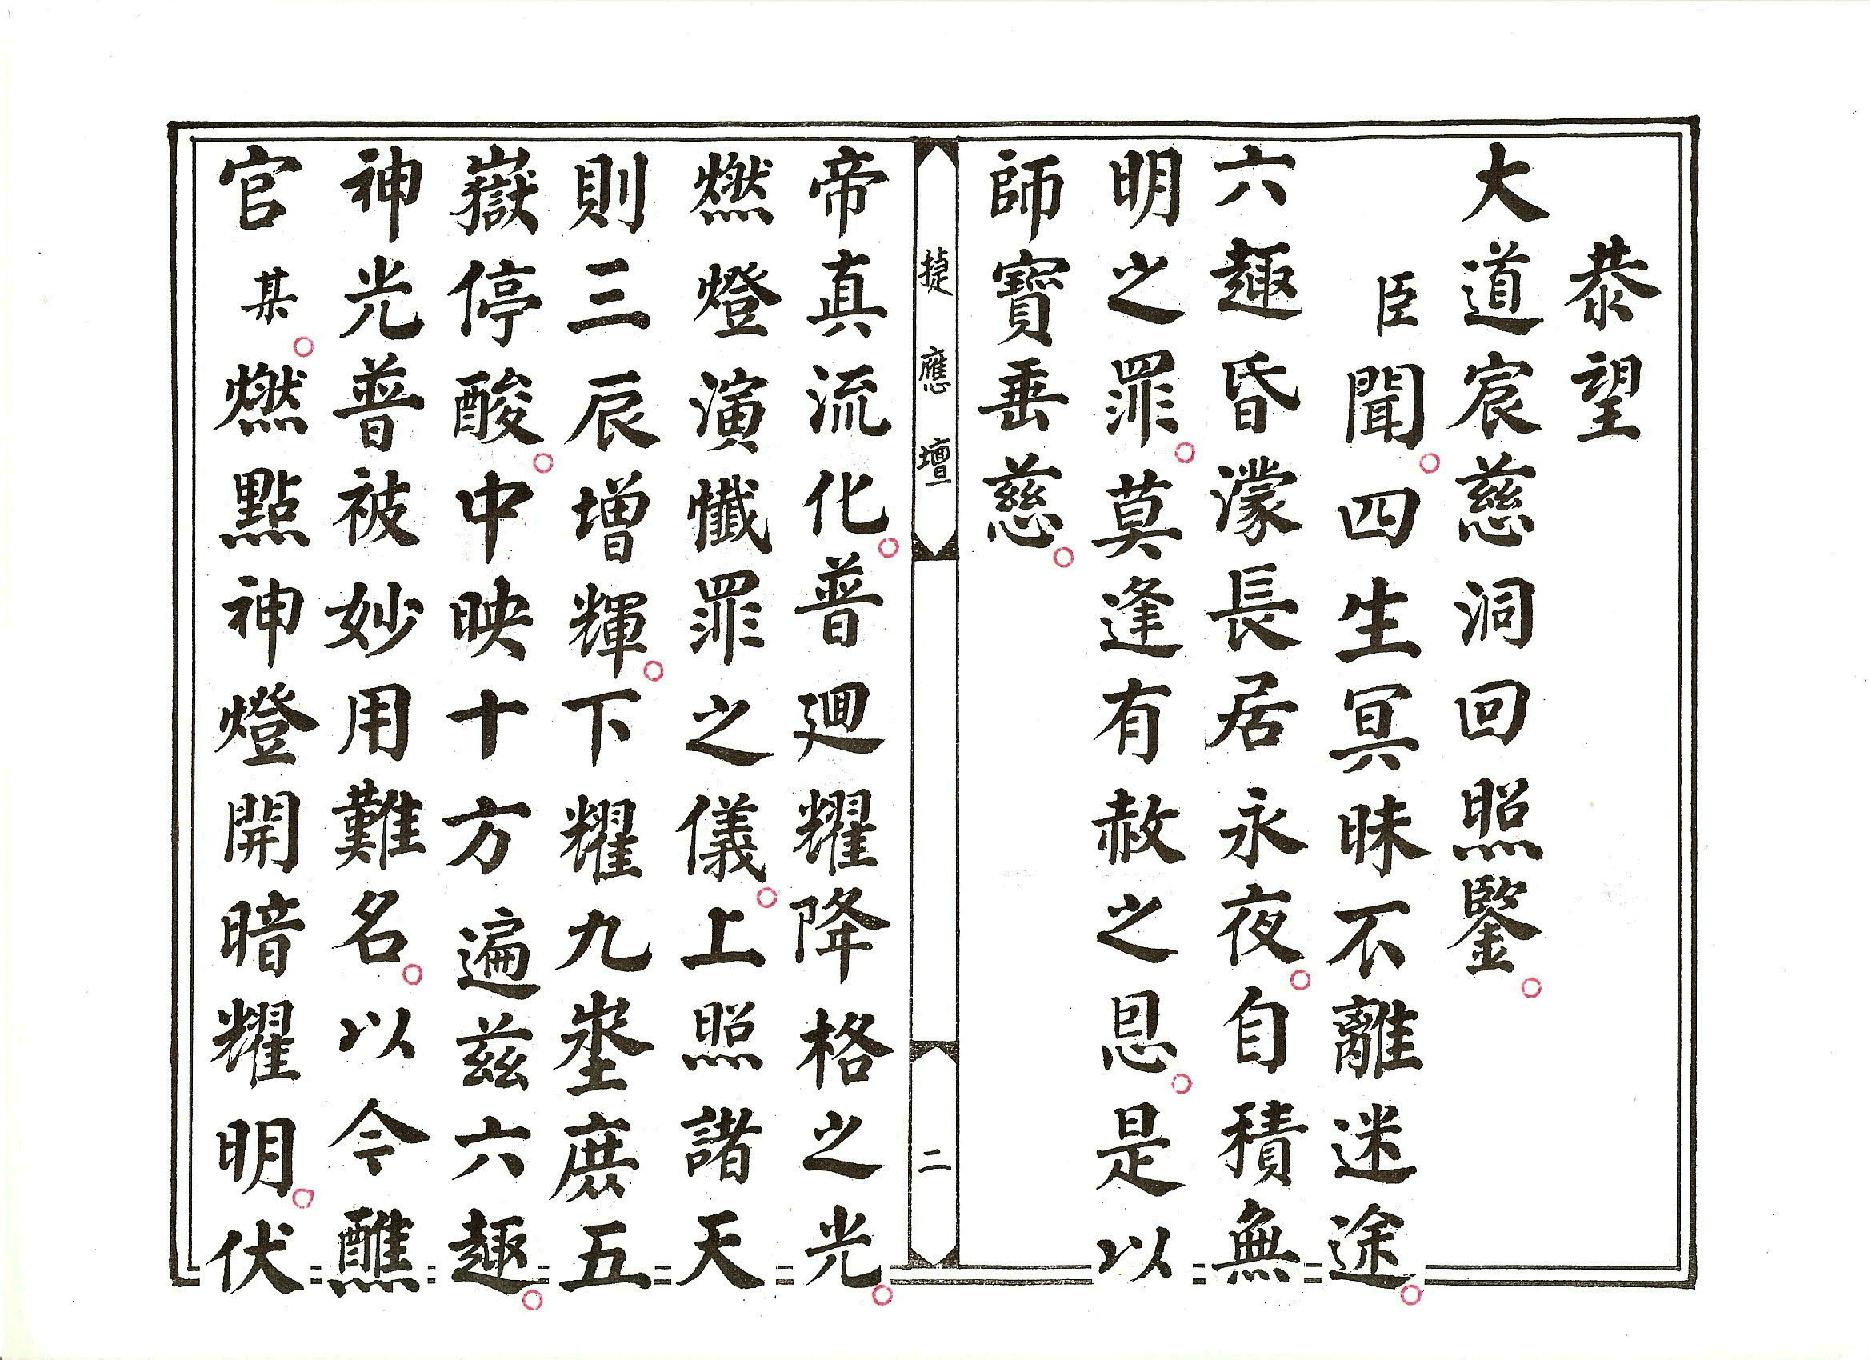 恭望
大道宸慈洞回照鑒。
臣聞。四生冥昧不離迷途。
六趣昏濛長居永夜。自積無
明之罪。莫逢有赦之恩。是以
師寶垂慈。
捷應壇
二
帝真流化。普廻耀降格之光。
燃燈演懺罪之儀。上照諸天
則三辰增輝。下耀九庶五
嶽停酸。中映十方遍茲六趣。
神光普被妙用難名。以今醮
官某。燃點神燈開暗耀明。伏